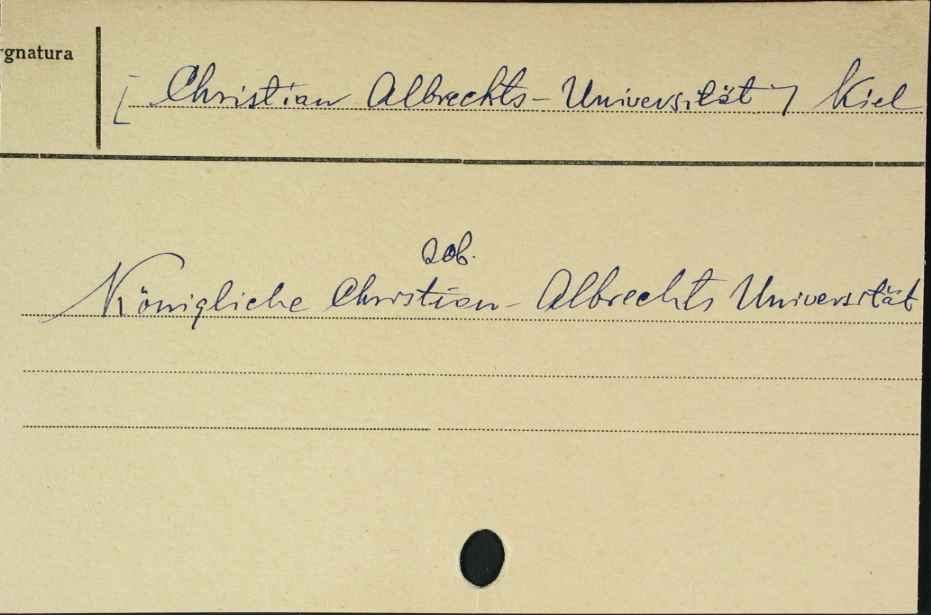 ygnatura
[Christian Albrechts-Universität] Kiel
zob.
Königliche Christian-Albrechts Universität